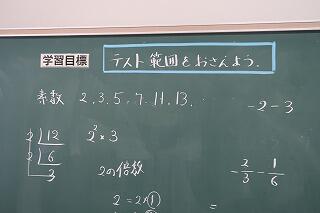 学習目標
テスト範囲をおさんよう.
素数 2, 3, 5, 7, 11, 13, . .
-2-3
2 12
2 6
3
2²×3
2の倍数
2 = 2×①
-2/3 - 1/6
=